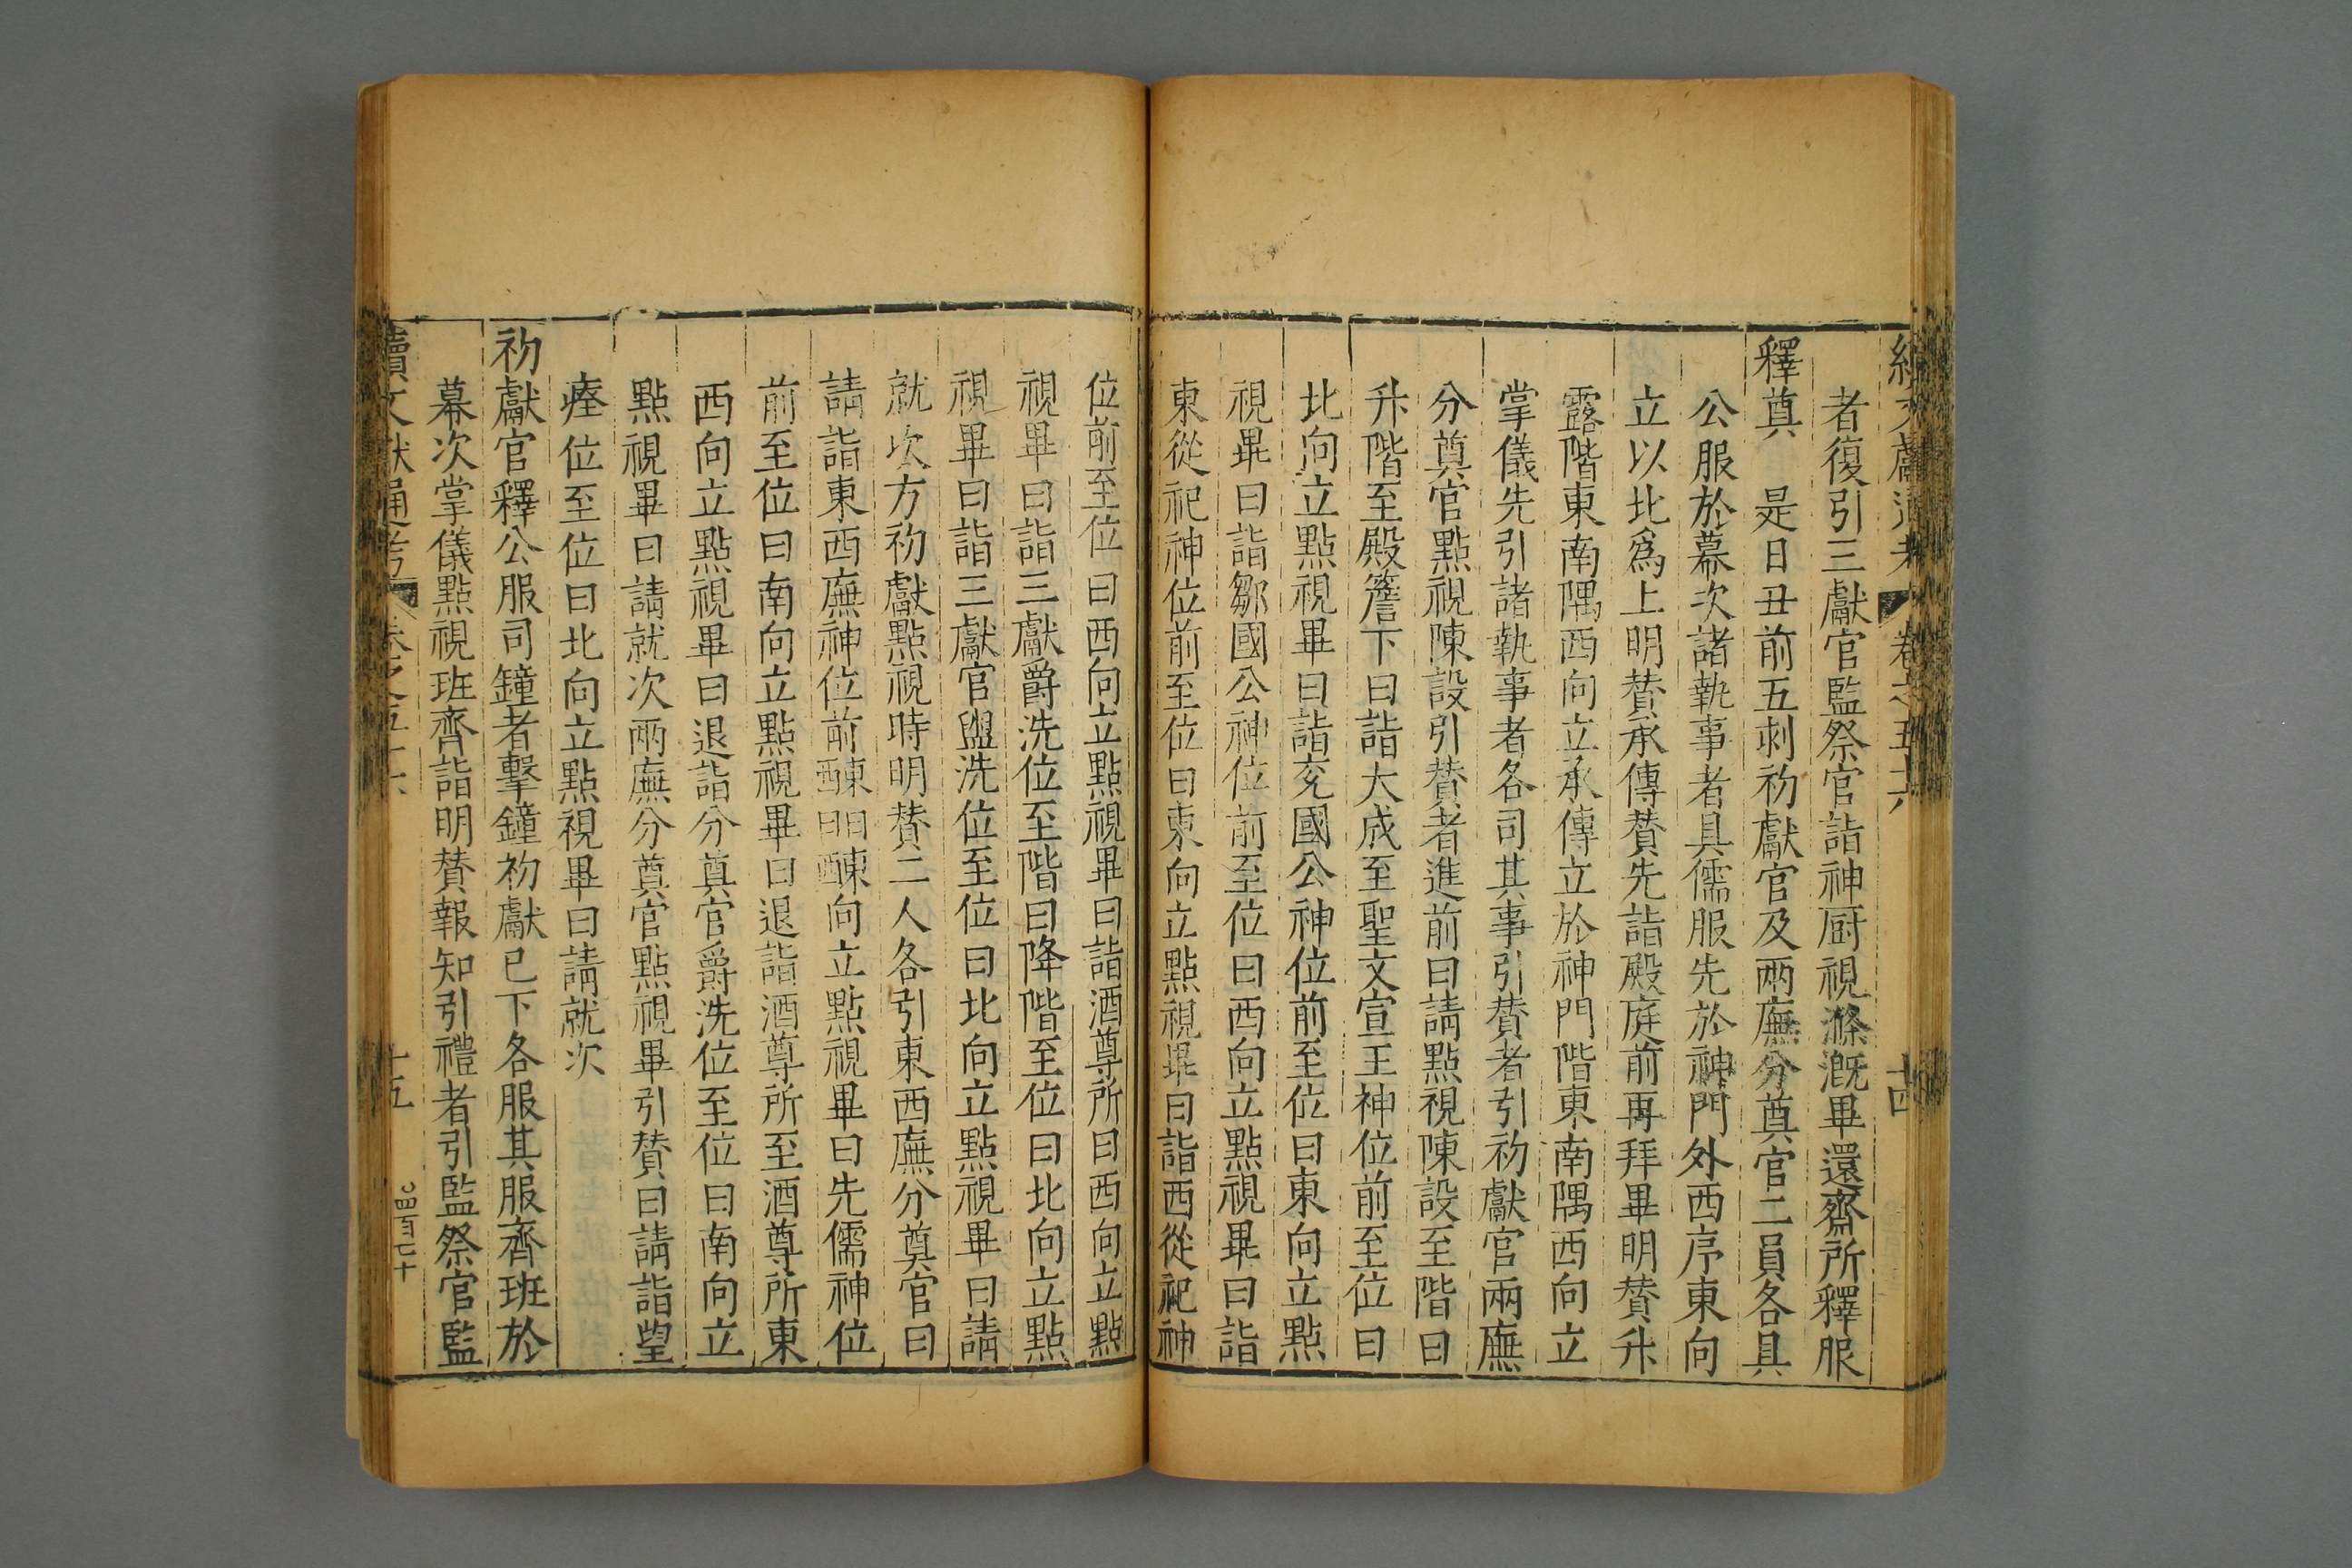 續文獻通考 卷之五十六 十四
者復引三獻官監祭官詣神厨視滌溉畢還齋所釋服
釋奠 是日丑前五刺初獻官及兩廡分奠官二員各具
公服於幕次諸執事者具儒服先於神門外西序東向
立以北爲上明贊承傳贊先詣殿庭前再拜畢明贊升
露階東南隅西向立承傳立於神門階東南隅西向立
掌儀先引諸執事者各司其事引贊者引初獻官兩廡
分奠官點視陳設引贊者進前曰請點視陳設至階曰
升階至殿簷下曰詣大成至聖文宣王神位前至位曰
北向立點視畢曰詣兗國公神位前至位曰東向立點
視畢曰詣鄒國公神位前至位曰西向立點視畢曰詣
東從祀神位前至位曰東向立點視畢曰詣西從祀神
位前至位曰西向立點視畢曰詣酒尊所曰西向立點
視畢曰詣三獻爵洗位至階曰降階至位曰北向立點
視畢曰詣三獻官盥洗位至位曰北向立點視畢曰請
就次方初獻點視時明贊二人各引東西廡分奠官曰
請詣東西廡神位前至位東曰東西曰西向立點視畢曰先儒神位
前至位曰南向立點視畢曰退詣酒尊所至酒尊所東
西向立點視畢曰退詣分奠官爵洗位至位曰南向立
點視畢曰請就次兩廡分奠官點視畢引贊曰請詣望
瘞位至位曰北向立點視畢曰請就次
初獻官釋公服司鐘者擊鐘初獻已下各服其服齊班於
幕次掌儀點視班齊詣明贊報知引禮者引監祭官監
續文獻通考 卷之五十六 十五 四百七十